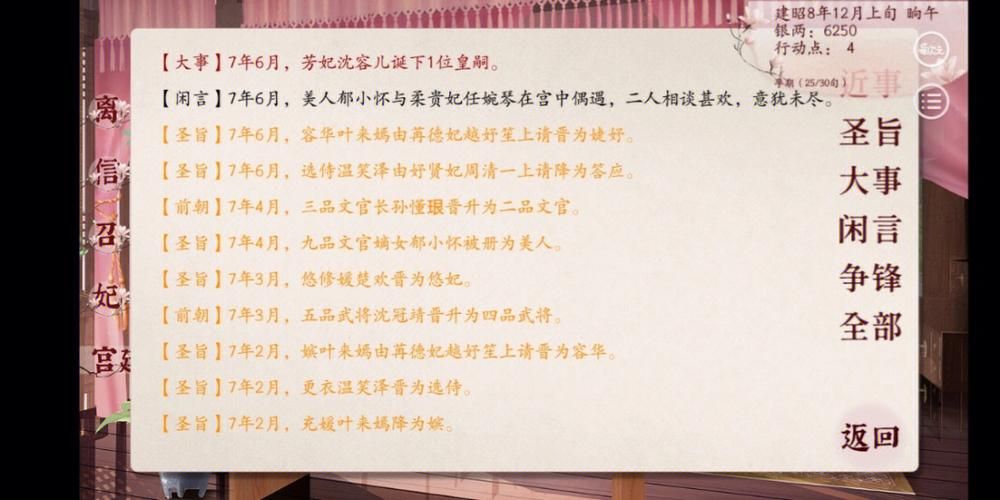 建昭8年12月上旬 晌午
银两：6250
行动点： 4
孕期（25/30旬）
近事
【大事】7年6月，芳妃沈容儿诞下1位皇嗣。
【闲言】7年6月，美人郁小怀与柔贵妃任婉琴在宫中偶遇，二人相谈甚欢，意犹未尽。
【圣旨】7年6月，容华叶来嫣由苒德妃越妤笙上请晋为婕妤。
【圣旨】7年6月，选侍温笑泽由妤贤妃周清一上请降为答应。
【前朝】7年4月，三品文官长孙慬珢晋升为二品文官。
【圣旨】7年4月，九品文官嫡女郁小怀被册为美人。
【圣旨】7年3月，悠修媛楚欢晋为悠妃。
【前朝】7年3月，五品武将沈冠靖晋升为四品武将。
【圣旨】7年2月，嫔叶来嫣由苒德妃越妤笙上请晋为容华。
【圣旨】7年2月，更衣温笑泽晋为选侍。
【圣旨】7年2月，充媛叶来嫣降为嫔。
圣旨
大事
闲言
争锋
全部
返回
离
信
召
妃
宫